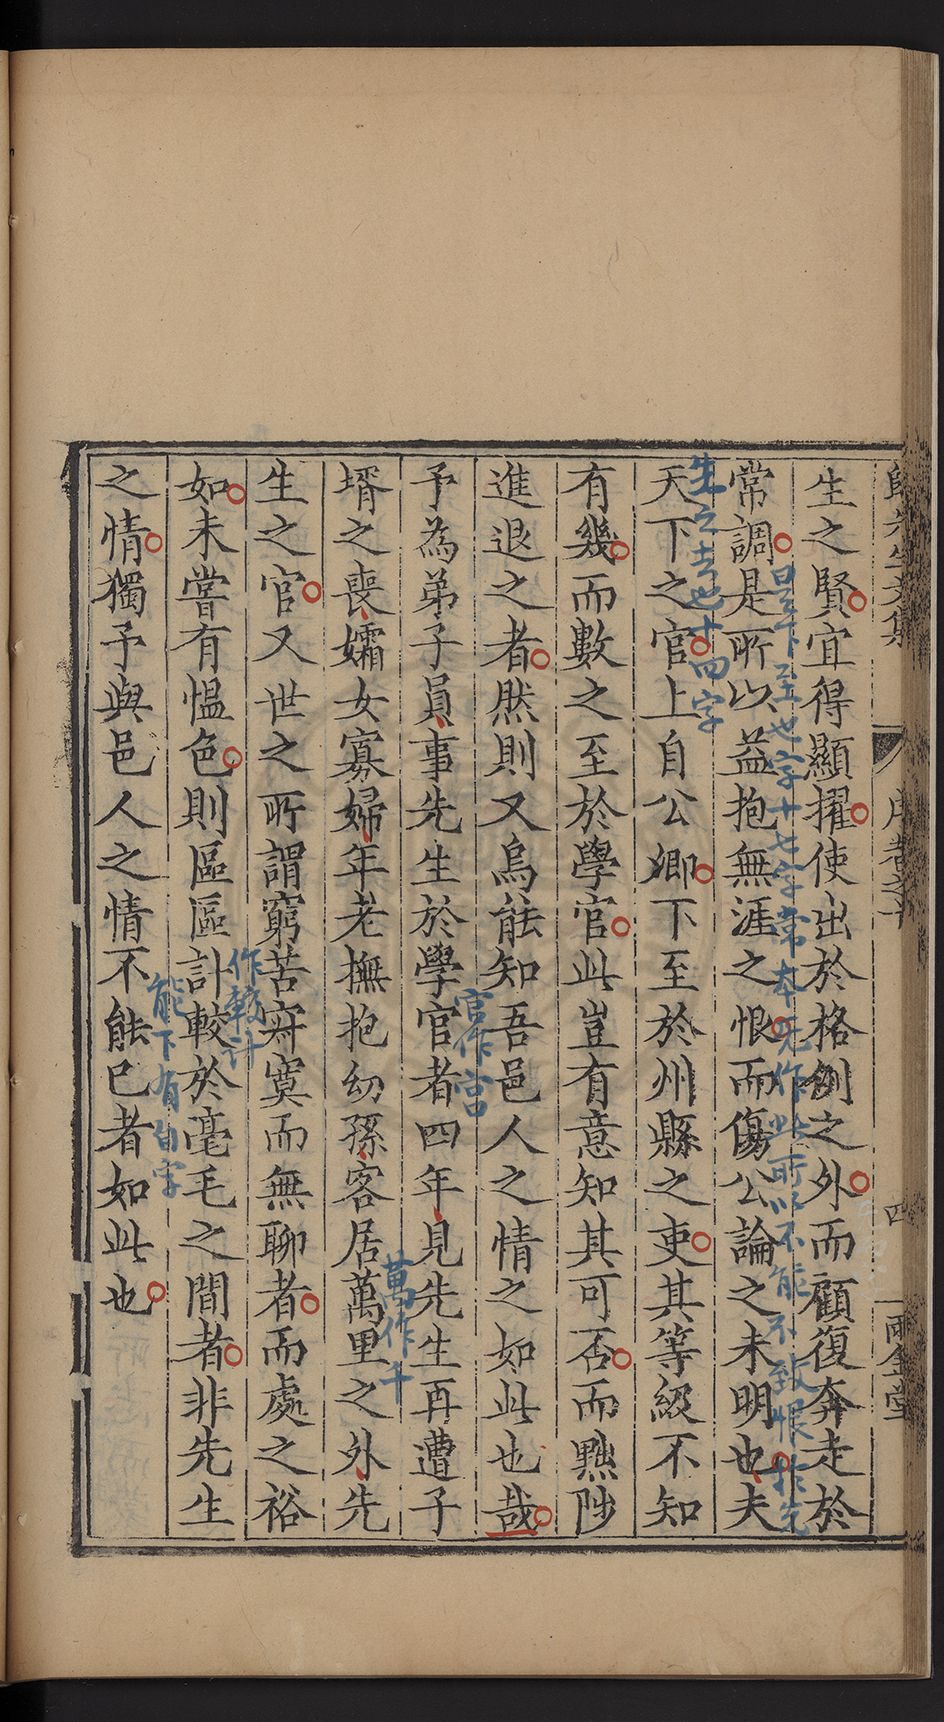 生之賢宜得顯擢使出於格例之外而顧復奔走於
是下至也字十七字常本无作此所以不能不致恨於先
常調是所以益抱無涯之恨而傷公論之未明也夫
生之去也十四字
天下之官上自公卿下至於州縣之吏其等級不知
有幾而數之至於學官此豈有意知其可否而黜陟
進退之者然則又烏能知吾邑人之情之如此也哉
官作宮
予為弟子員事先生於學官者四年見先生再遭子
萬作千
壻之喪孀女寡婦年老撫抱幼孫客居萬里之外先
生之官又世之所謂窮苦寂寞而無聊者而處之裕
作較計
如未嘗有愠色則區區計較於毫毛之間者非先生
能下有自字
之情獨予與邑人之情不能已者如此也